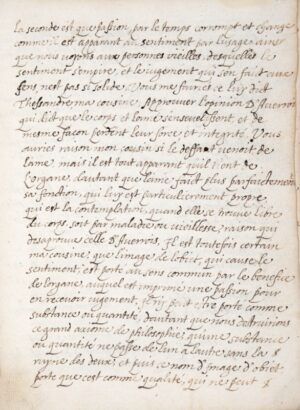 la seconde est que passion, par le temps corrompt et change
comme il est aparant au sentiment par l'usage ainsi
que nous voyons aux personnes vieilles, desquelles le
sentiment s'empire, et le iugement qui s'en faict aux
sens, n'est pas si solide. Vous me faites ce luy dict
Thelxandre ma cousine, Approuver l'opinion D'Averrois
qui dict que le corps et l'ame sensuel sont, et de
mesme facon perdent leur force et integrité. Vous
auriés raison mon cousin si le deffaut venoit de
l'ame, mais il est tout aparant qu'il vient de
l'organe, d'autant que l'ame faict plus parfaictement
sa fonction, qui luy est particulierement propre
qui est la contemplation, quand elle se trouve libre
du corps, soit par maladie ou vieillesse, raison qui
desaprouve celle D'Averrois. Il est toutefois certain
ma cousine, que l'image de l'obiet, qui cause le
sentiment, est porté au sens commun par le benefice
de l'organe, auquel est imprimé une passion pour
en recevoir iugement, et n'y peut estre porté comme
substance ou quantité, d'autant que nous destruirions
ce grand axiome de philosophie, qu'une substance
ou quantité ne passe de l'un a l'autre sans la
rayne des deux, et puis ce nom d'image d'obiet,
porte que c'est comme qualité, qui ne peut